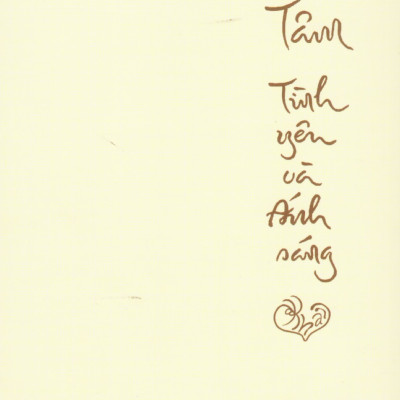 Tâm
Tình
yêu
và
Ánh
sáng